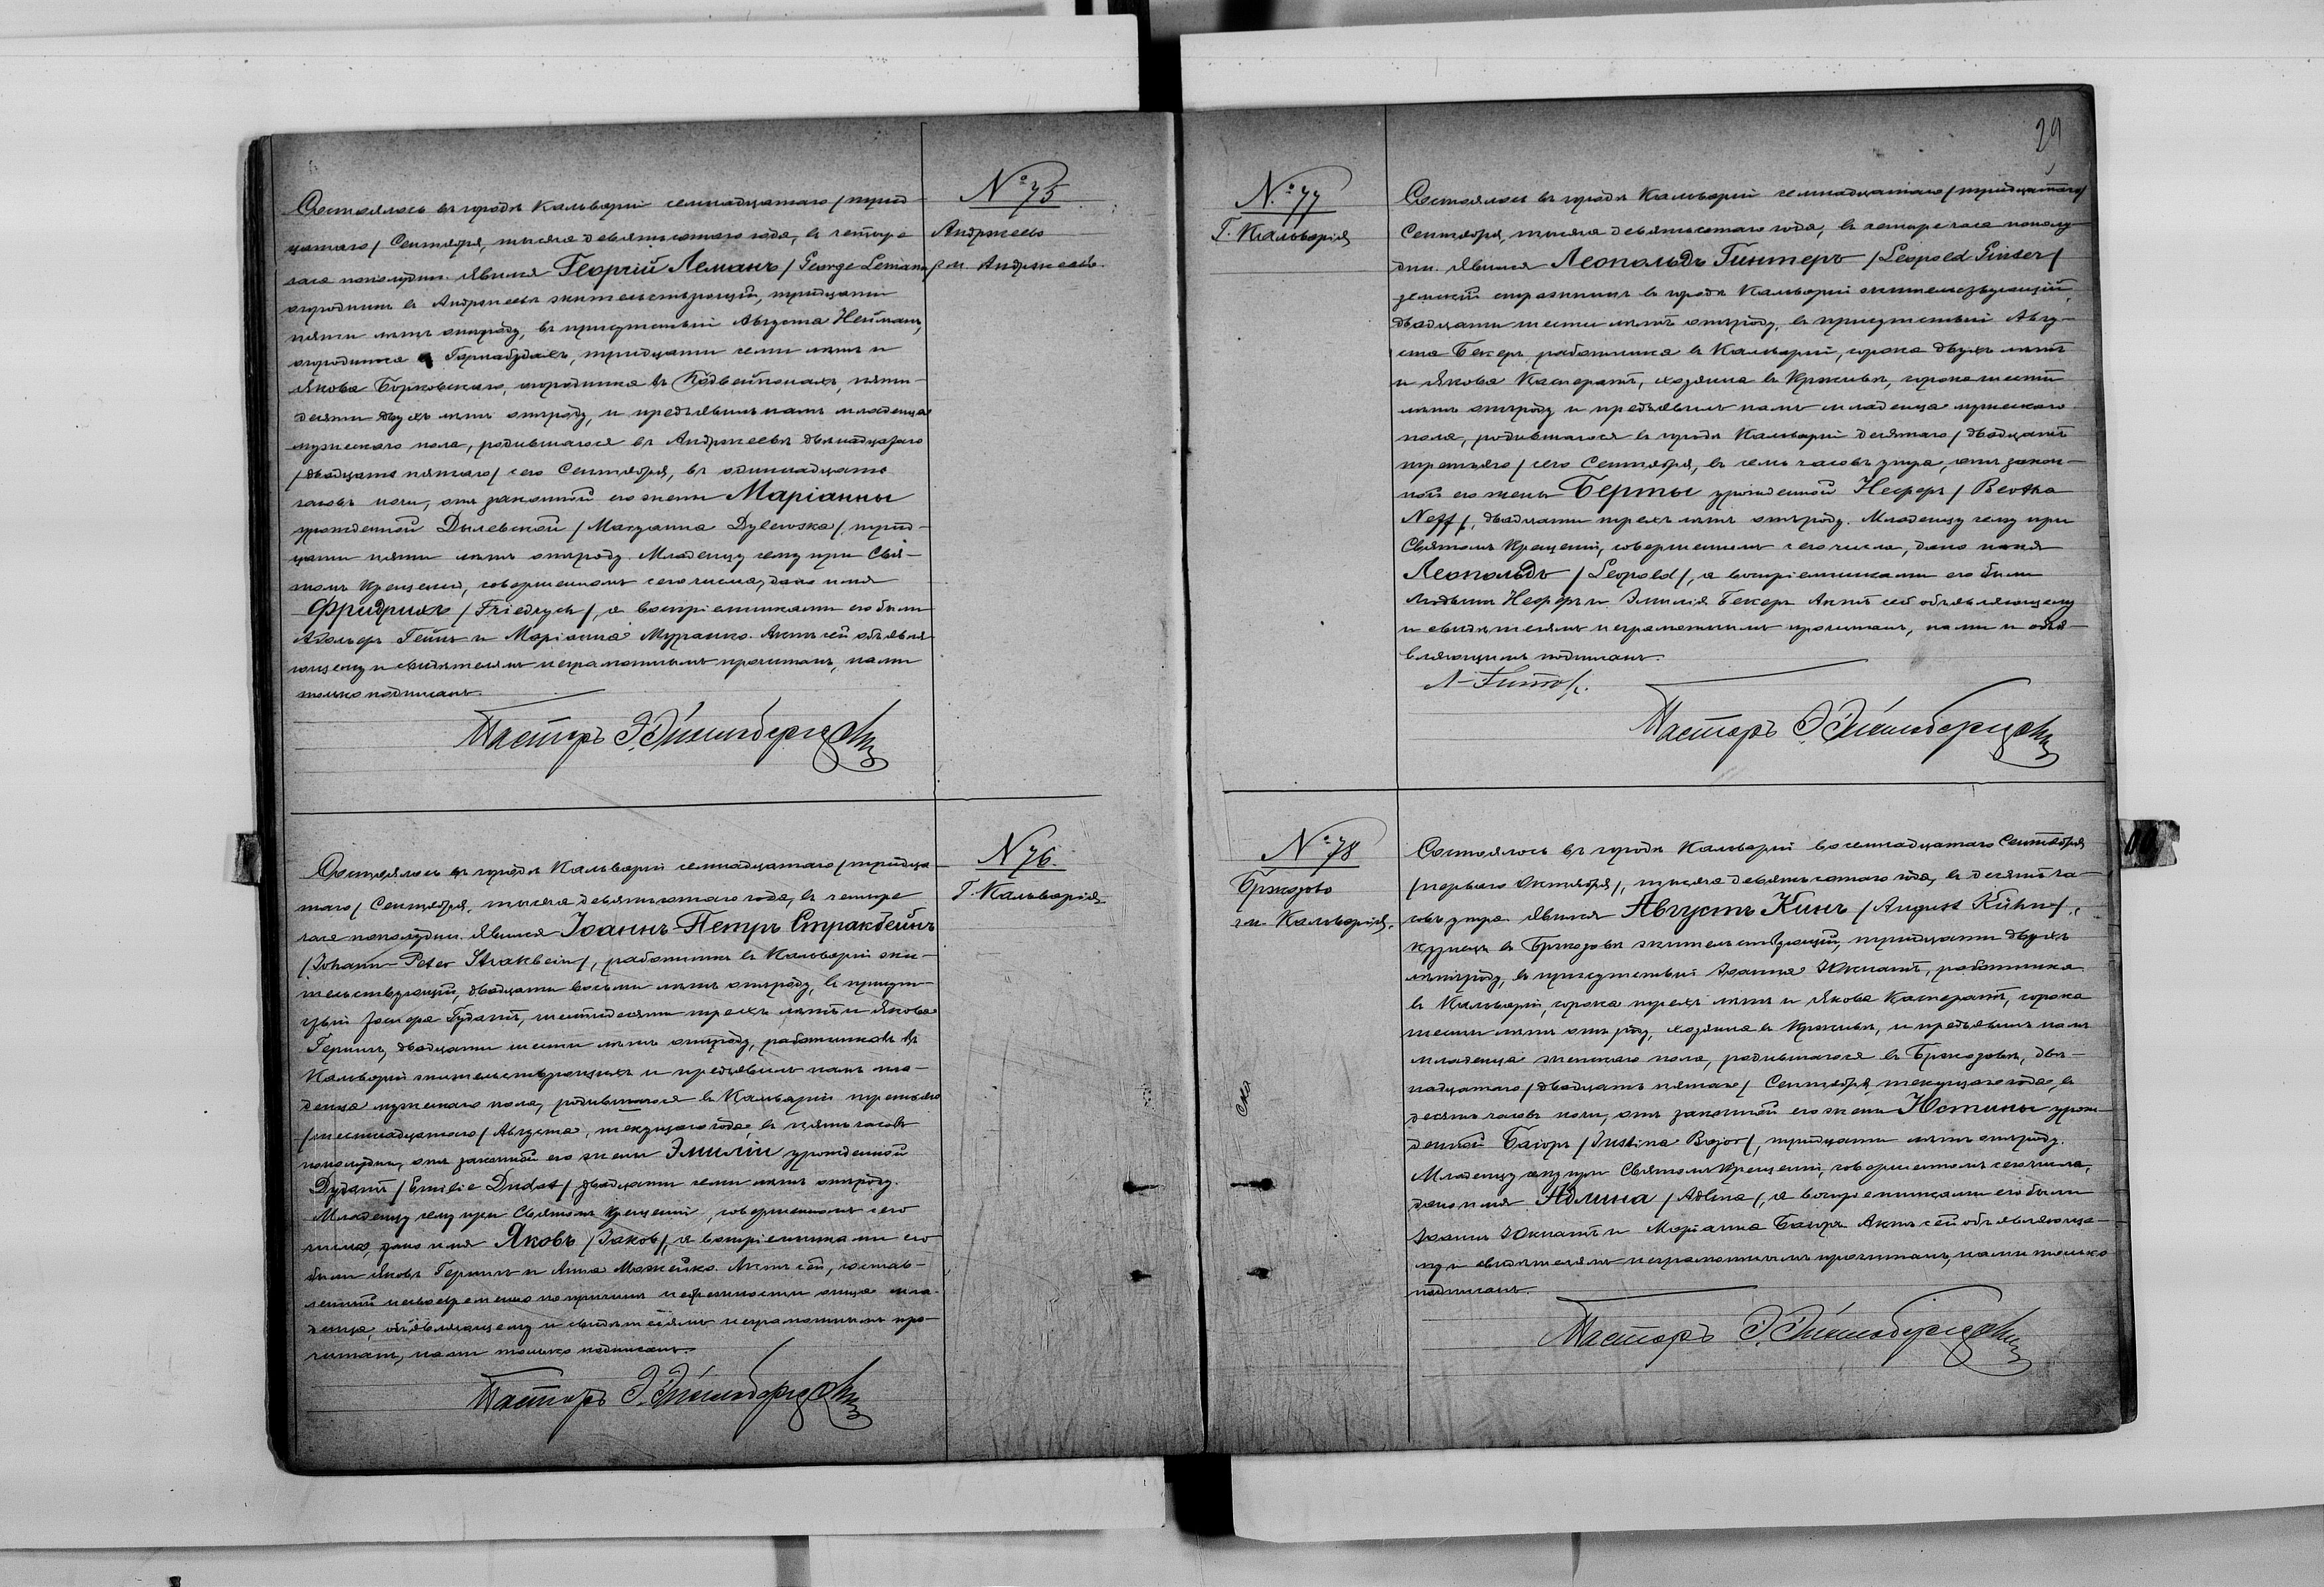 Состоялось въ городѣ Кальваріи семнадцатаго /трид-
цатаго/ Сентября, тысяча девятьсотаго года, въ четыре
часа пополудни. Явился Георгій Леманъ /George Lemann/
огородникъ въ Андржеевѣ жительствующій, тридцати
пяти лѣтъ отъ роду, въ присутствіи Августа Нейманъ,
огородника въ тридцати семи лѣтъ и
Якова Борковскаго, огородника въ пяти-
десяти двухъ лѣтъ отъ роду, и предъявилъ намъ младенца
мужескаго пола, родившагося въ Андржеевѣ двѣнадцатаго
/двадцать пятаго/ сего Сентября, въ одиннадцать
часовъ ночи, отъ законной его жены Маріанны
урожденной Дылевской /Maryanna Dylewska/, трид-
цати пяти лѣтъ отъ роду. Младенцу сему при Свя-
томъ Крещеніи, совершенномъ сего числа, дано имя
Фридрихъ /Friedrych/, а воспріемниками его были
Адольфъ Гейнъ и Маріанна Мурашко. Актъ сей объявля-
ющему и свидѣтелямъ неграмотнымъ прочитанъ, нами
только подписанъ.
Пасторъ Э.
№ 75
Андржеево
гм. Андржеевъ.
Состоялось въ городѣ Кальваріи семнадцатаго /тридца-
таго/ Сентября, тысяча девятьсотаго года, въ четыре
часа пополудни. Явился Іоаннъ-Петръ Стракбейнъ
/Johann-Peter Strakbein/, работникъ въ Кальваріи жи-
тельствующій, двадцати восьми лѣтъ отъ роду, въ присут-
ствіи Дудатъ, шестидесяти трехъ лѣтъ и Якова
двадцати шести лѣтъ отъ роду, работниковъ въ
Кальваріи жительствующихъ и предъявилъ намъ мла-
денца мужескаго пола, родившагося въ Кальваріи третьяго
/шестнадцатаго/ Августа, текущаго года, въ пять часовъ
пополудни, отъ законной его жены Эмиліи урожденной
Дудатъ /Emilie Dudat/, двадцати семи лѣтъ отъ роду.
Младенцу сему при Святомъ Крещеніи, совершенномъ сего
числа, дано имя Яковъ /Jakob/, а воспріемниками его
были Яковъ и Анна Можейко. Актъ сей, состав-
ленный несвоевременно по причинѣ небрежности отца мла-
денца, объявляющему и свидѣтелямъ неграмотнымъ про-
читанъ, нами только подписанъ.
Пасторъ Э.
№ 76.
Г. Кальварія
29
№ 77
Г. Кальварія
Состоялось въ городѣ Кальваріи семнадцатаго /тридцатаго/
Сентября, тысяча девятьсотаго года, въ четыре часа пополу-
дни. Явился Леопольдъ Гинтеръ /Leopold Ginter/
земскій стражникъ въ городѣ Кальваріи жительствующій,
двадцати шести лѣтъ отъ роду, въ присутствіи Авгу-
ста Бекеръ работника въ Кальваріи, сорока двухъ лѣтъ
и Якова Касператъ, хозяина въ сорока шести
лѣтъ отъ роду и предъявилъ намъ младенца мужескаго
пола, родившагося въ городѣ Кальваріи десятаго /двадцать
третьяго/ сего Сентября, въ семь часовъ утра, отъ закон-
ной его жены Берты урожденной Нефферъ /Bertha
Neff/, двадцати трехъ лѣтъ отъ роду. Младенцу сему при
Святомъ Крещеніи, совершенномъ сего числа, дано имя
Леопольдъ /Leopold/, а воспріемниками его были
Нефферъ и Эмилія Бекеръ. Актъ сей объявляющему
и свидѣтелямъ неграмотнымъ прочитанъ, нами и объя-
вляющимъ подписанъ.
Пасторъ Э.
№ 78
Бржозово
гм. Кальварія.
Состоялось въ городѣ Кальваріи восемнадцатаго Сентября
/перваго Октября/, тысяча девятьсотаго года, въ десять ча-
совъ утра. Явился Августъ Кинъ /August Kühn/,
кузнецъ въ Бржозовѣ жительствующій, тридцати двухъ
лѣтъ отъ роду, въ присутствіи Іоанна Юкнатъ, работника
въ Кальваріи, сорока трехъ лѣтъ и Якова Касператъ, сорока
шести лѣтъ отъ роду, хозяина въ и предъявилъ намъ
младенца женскаго пола, родившагося въ Бржозовѣ, двѣ-
надцатаго /двадцать пятаго/ Сентября, текущаго года, въ
десять часовъ ночи, отъ законной его жены Юстины урож-
денной Баіоръ /Justina Bajor/, тридцати лѣтъ отъ роду.
Младенцу сему при Святомъ Крещеніи, совершенномъ сего числа,
дано имя Адлина /Adlina/, а воспріемниками его были
Іоаннъ Юкнатъ и Маріанна Баіоръ. Актъ сей объявляюще-
му и свидѣтелямъ неграмотнымъ прочитанъ, нами только
подписанъ.
Пасторъ Э.